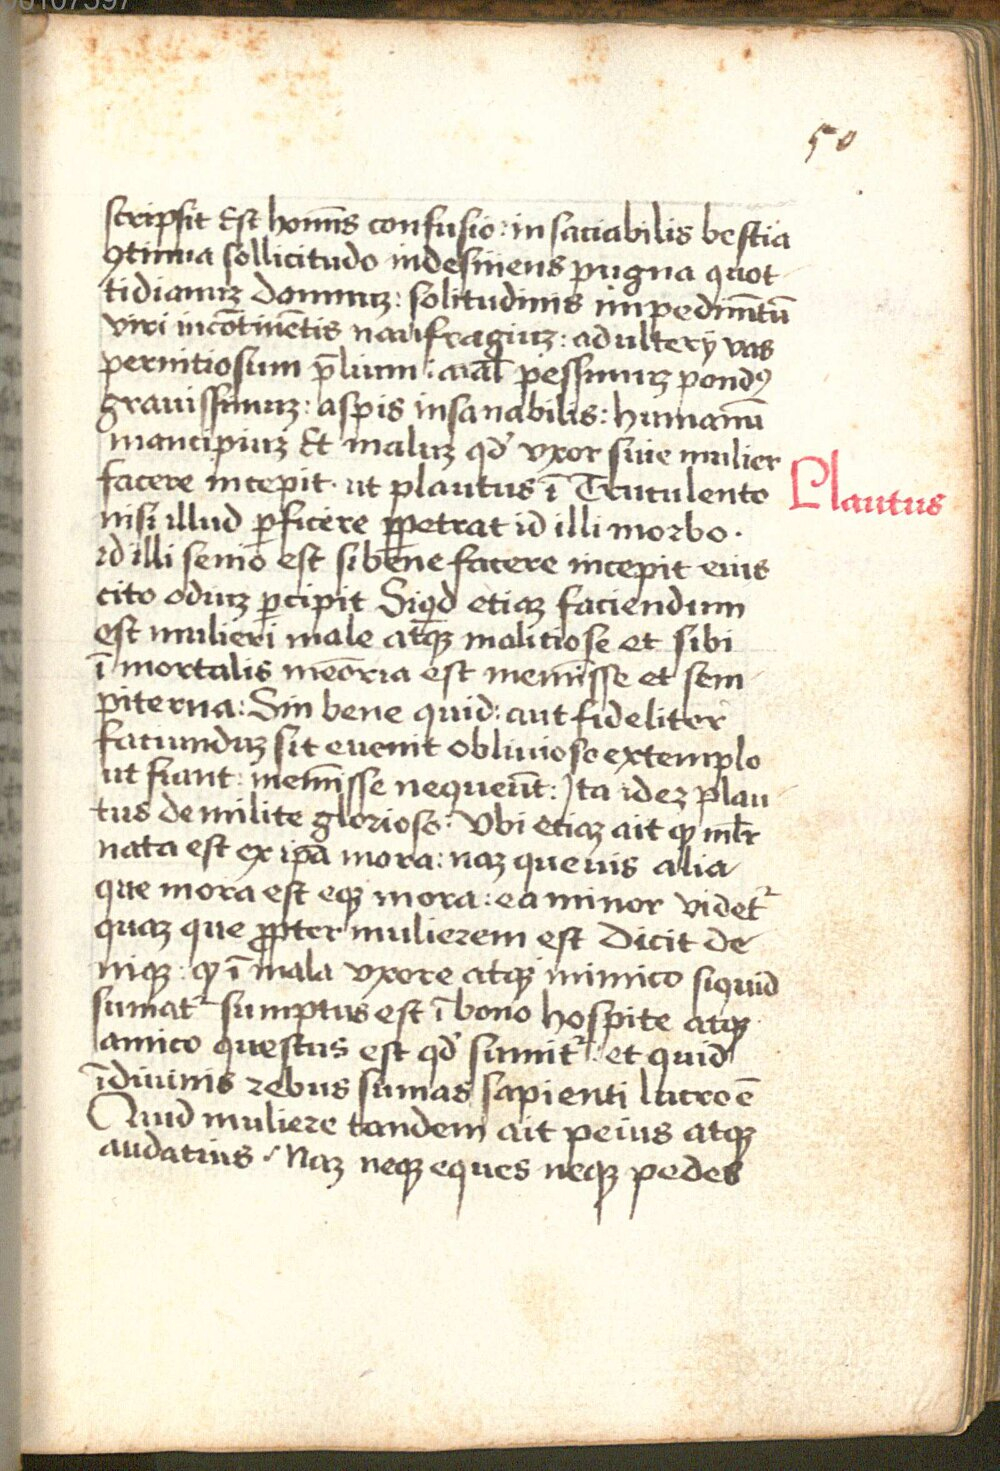 50
scripsit Est homīs confusio: in saciabilis bestia
ꝯtinua sollicitudo indesinens pugna quot
tidianuꝫ damnuꝫ: solitudinis impedimētū
viri incōtinētis naufragiuꝫ: adulterij vas
pernitiosum p̄lium: aīal pessimuꝫ pondꝰ
grauissimuꝫ: aspis insanabilis: humanū
mancipiuꝫ Et maluꝫ qd̕ vxor siue mulier
facere incepit. ut plautus ī Truculento
Plautus
nisi illud ꝑficere ꝑpetrat id illi morbo.
id illi senio est si bene facere incepit eius
cito odiuꝫ ꝑcipit Siqd etiaꝫ faciendum
est mulieri male atqꝫ malitiose et sibi
ī mortalis meōria est meminisse et sem
piterna: Sin bene quid: aut fideliter
faciunduꝫ sit euenit obliuiose extemplo
ut fiant: memīsse nequeūt: Ita ideꝫ plau
tus de milite glorioso: Vbi etiaꝫ ait ꝙ mlr̄
nata est ex ipā mora: naꝫ queuis alia
que mora est eqꝫ mora: ea minor videt᷑
quaꝫ que ꝓpter mulierem est Dicit de
niqꝫ: ꝙ ī mala vxore atqꝫ inimico siquid
sumat᷑ sumptus est ī bono hospite atqꝫ
amico questus est qd̕ sumit᷑: et quid
ī diuinis rebus sumas sapienti lucro ē
Quid muliere tandem ait peius atqꝫ
audatius / Naꝫ neqꝫ eques neqꝫ pedes